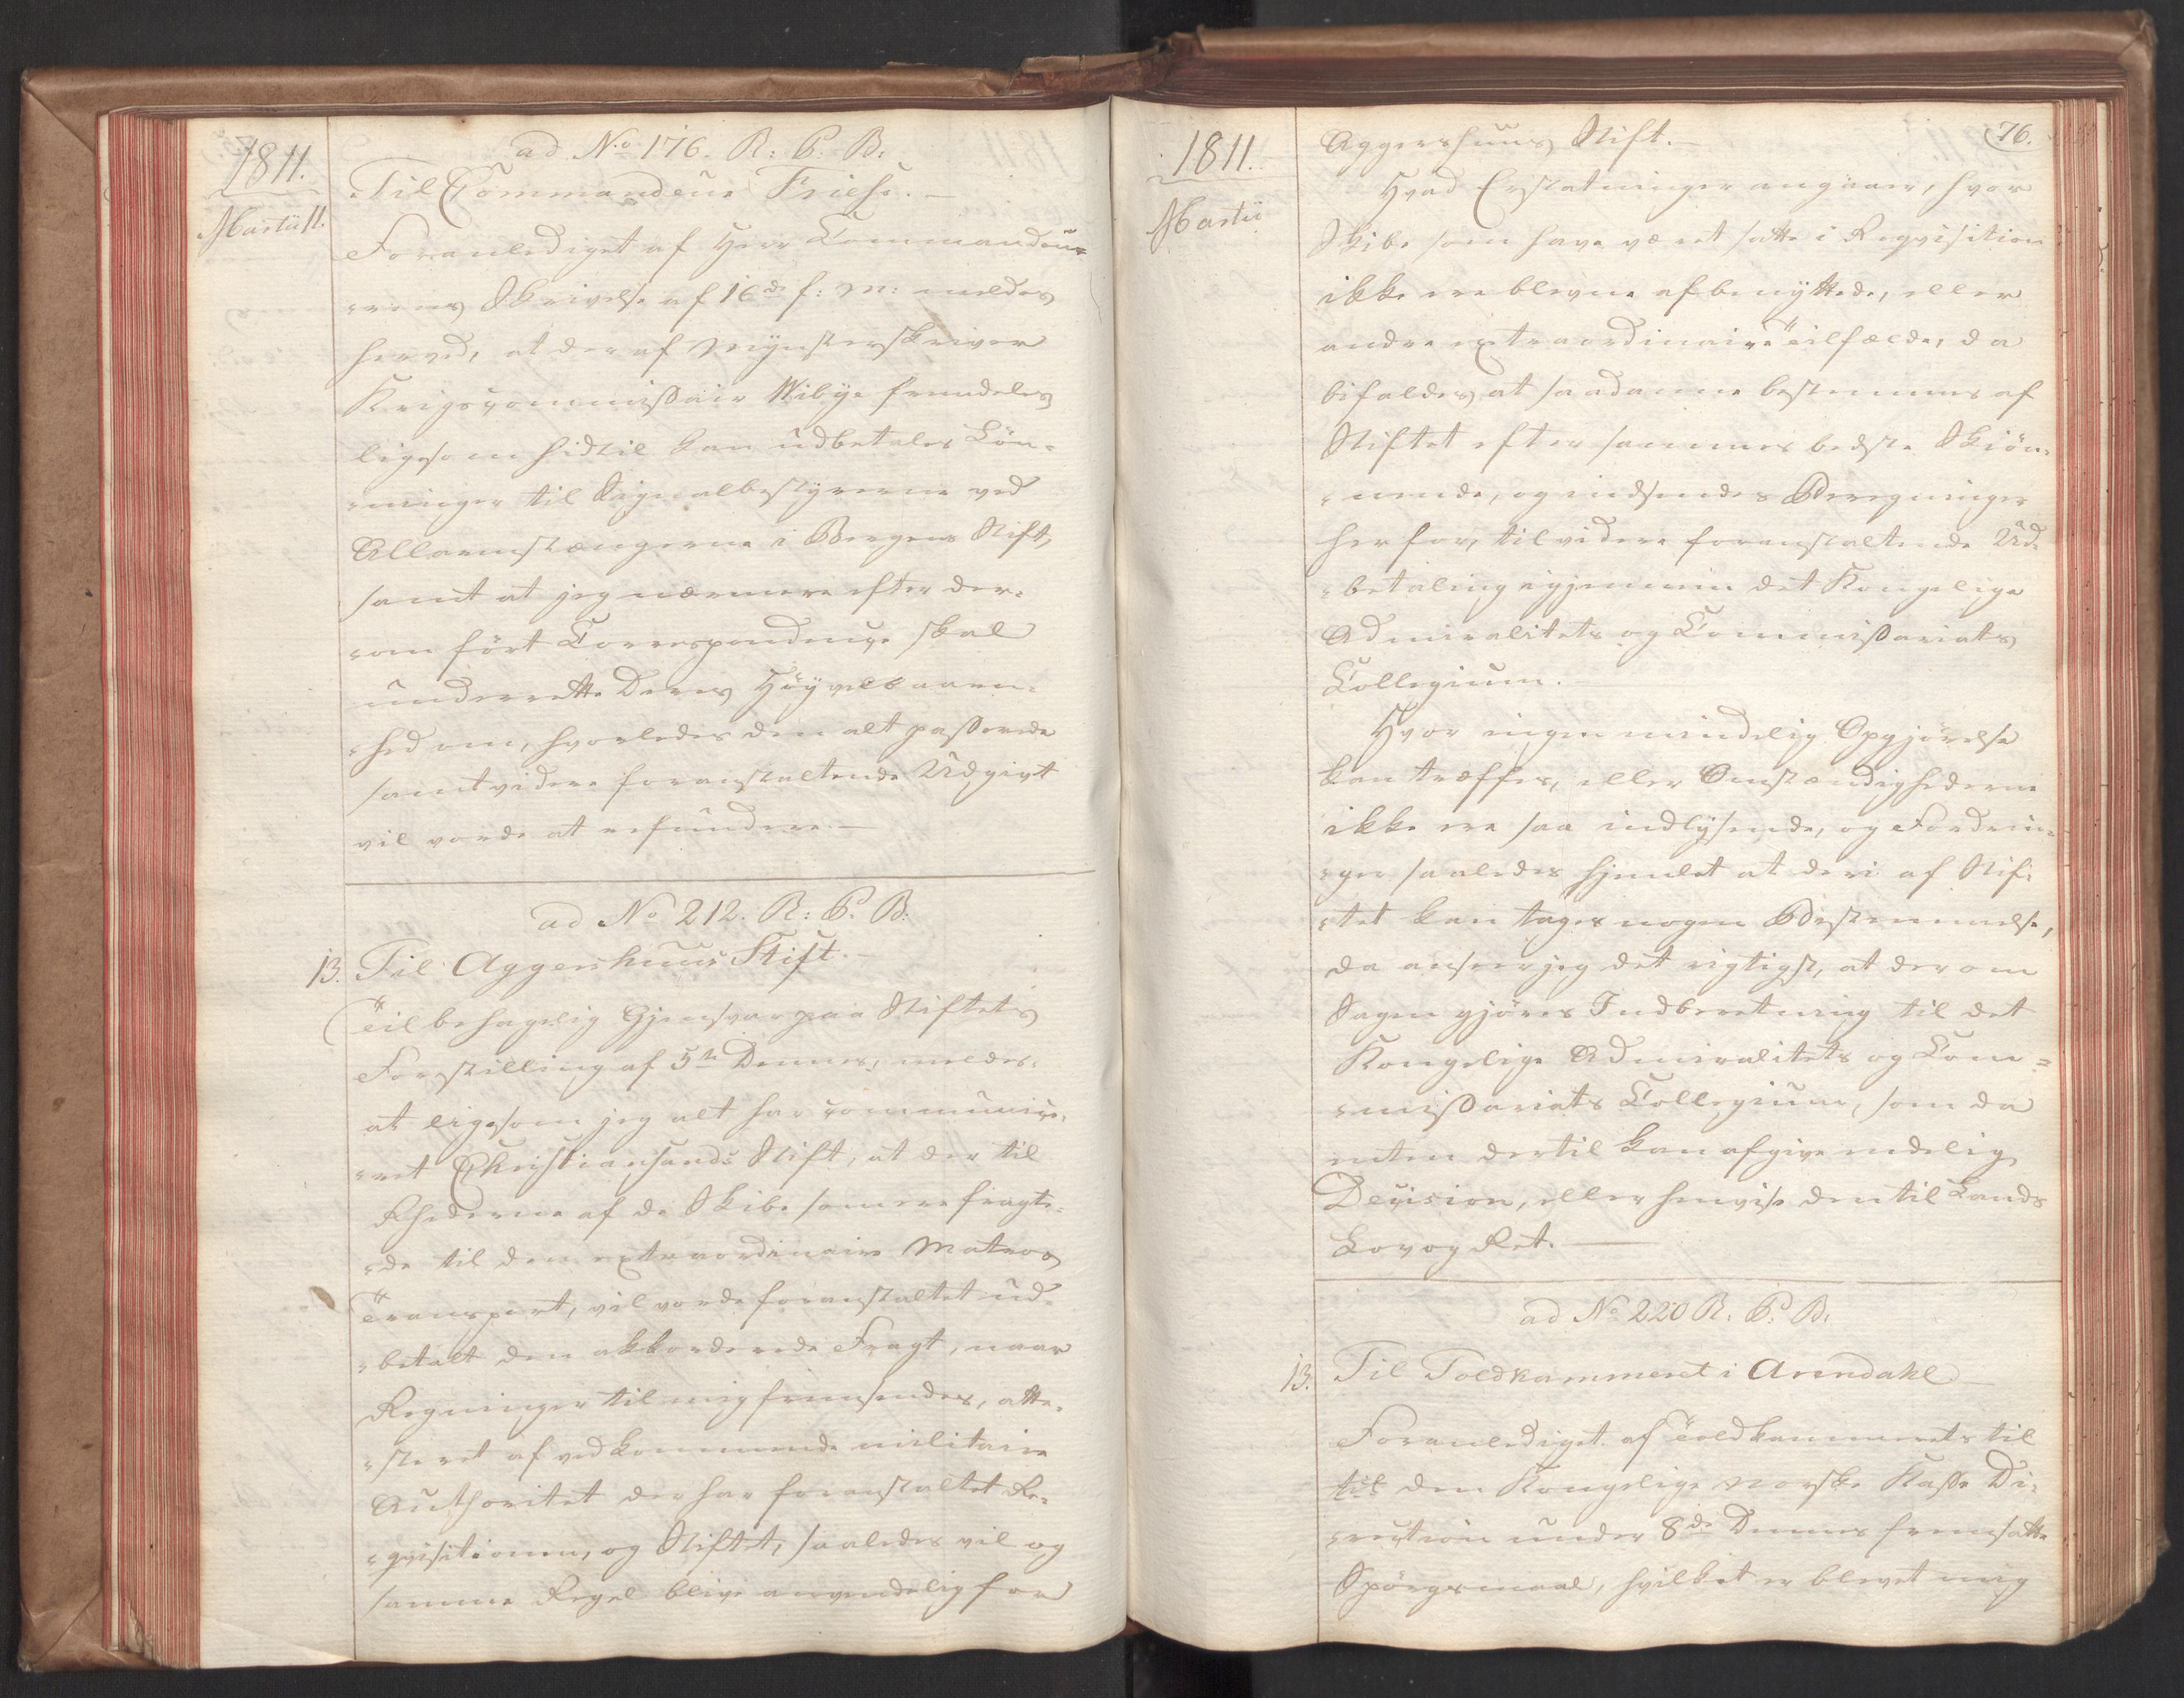 1811.
Martii 11.
ad No 176. R: P: B:
Til Commandeur Friese.
Foranlediget af Herr Commandeu-
rens Skrivelse af 16de f: M: meldes
herved, at der af Mynsterskriver
Krigscommissair Wibye fremdeles
ligesom hidtil kan udbetales Løn-
ninger til Signalbestyrerne ved
Allarmstængerne i Bergens Stift,
samt at jeg nærmere efter der-
om ført Correspondence skal
underrette Deres Høyvelbaaren-
hed om, hvorledes den alt passerede
samt videre foranstaltende Udgivt
vil vorde at refundere.
ad No 212. R: P: B:
13. Til Aggershuus Stift.
Til behagelig Gjensvar paa Stiftets
Forstilling af 5te Dennes, meldes,
at ligesom jeg alt har communice-
ret Christiansands Stift, at der til
Rhederne af de Skibe som ere fragte-
de til den extraordinaire Matros
Transport, vil vorde foranstaltet ud-
betalt den akkorderede Fragt, naar
Regninger til mig fremsendes, atte-
steret af vedkommende militaire
Authoritet der har foranstaltet Re-
qvisitionen, og Stiftet, saaledes vil og
samme Regel blive anvendelig for
1811.
Martii
76.
Aggershuus Stift.
Hvad Erstatninger angaaer, hvor
Skibe som have været satte i Reqvisition
ikke ere blevne afbenyttede, eller
andre extraordinaire Tilfælde, da
bifaldes at saadanne bestemmes af
Stiftet efter sammes bedste Skiøn-
nende, og indsendes Beregninger
herfor, til videre foranstaltende Ud-
betaling igjennem det Kongelige
Admiralitets og Commissariats
Collegium.
Hvor ingen mindelig Opgjørelse
kan træffes, eller Omstændighederne
ikke ere saa indlysende, og Fordrin-
ger saaledes hjemlet at deri af Stif-
tet kan tages nogen Bestemmelse,
da anseer jeg det rigtigst, at der om
Sagen gjøres Indberetning til det
Kongelige Admiralitets og Com-
missariats Collegium, som da
enten dertil kan afgive endelig
Decision, eller henvise den til Lands
Lov og Ret.
ad No 220 R. P. B.
13. Til Toldkammeret i Arendahl
Foranlediget af Toldkammerets til
til den Kongelige Norske Kasse Di-
rection under 8de Dennes fremsatte
Spørgsmaal, hvilket er blevet mig